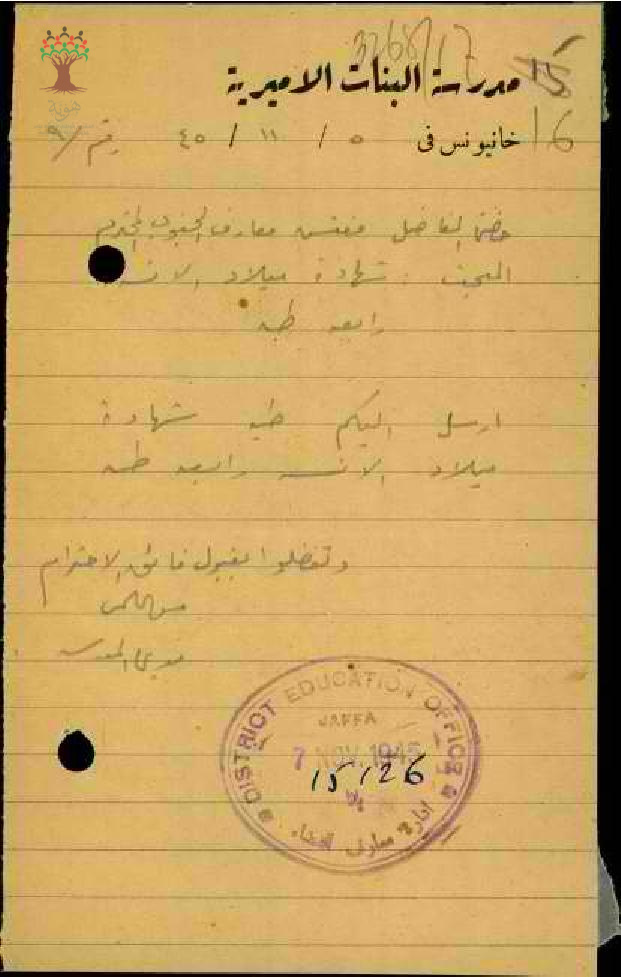 هوية
3268/17
مدرسة البنات الاميرية 15
خانيونس فى ٥ / ١١ / ٤٥ رقم ٩/ 16
حضرة الفاضل مفتش معارف الجنوب المحترم
المبحث : شهادة ميلاد الانسة
رابعه طه
ارسل اليكم طيه شهادة
ميلاد الانسه رابعه طه
وتفضلوا بقبول فائق الاحترام
مديرة المدرسه
DISTRICT EDUCATION OFFICE
JAFFA
7 NOV. 1945
15126
ادارة معارف اللواء